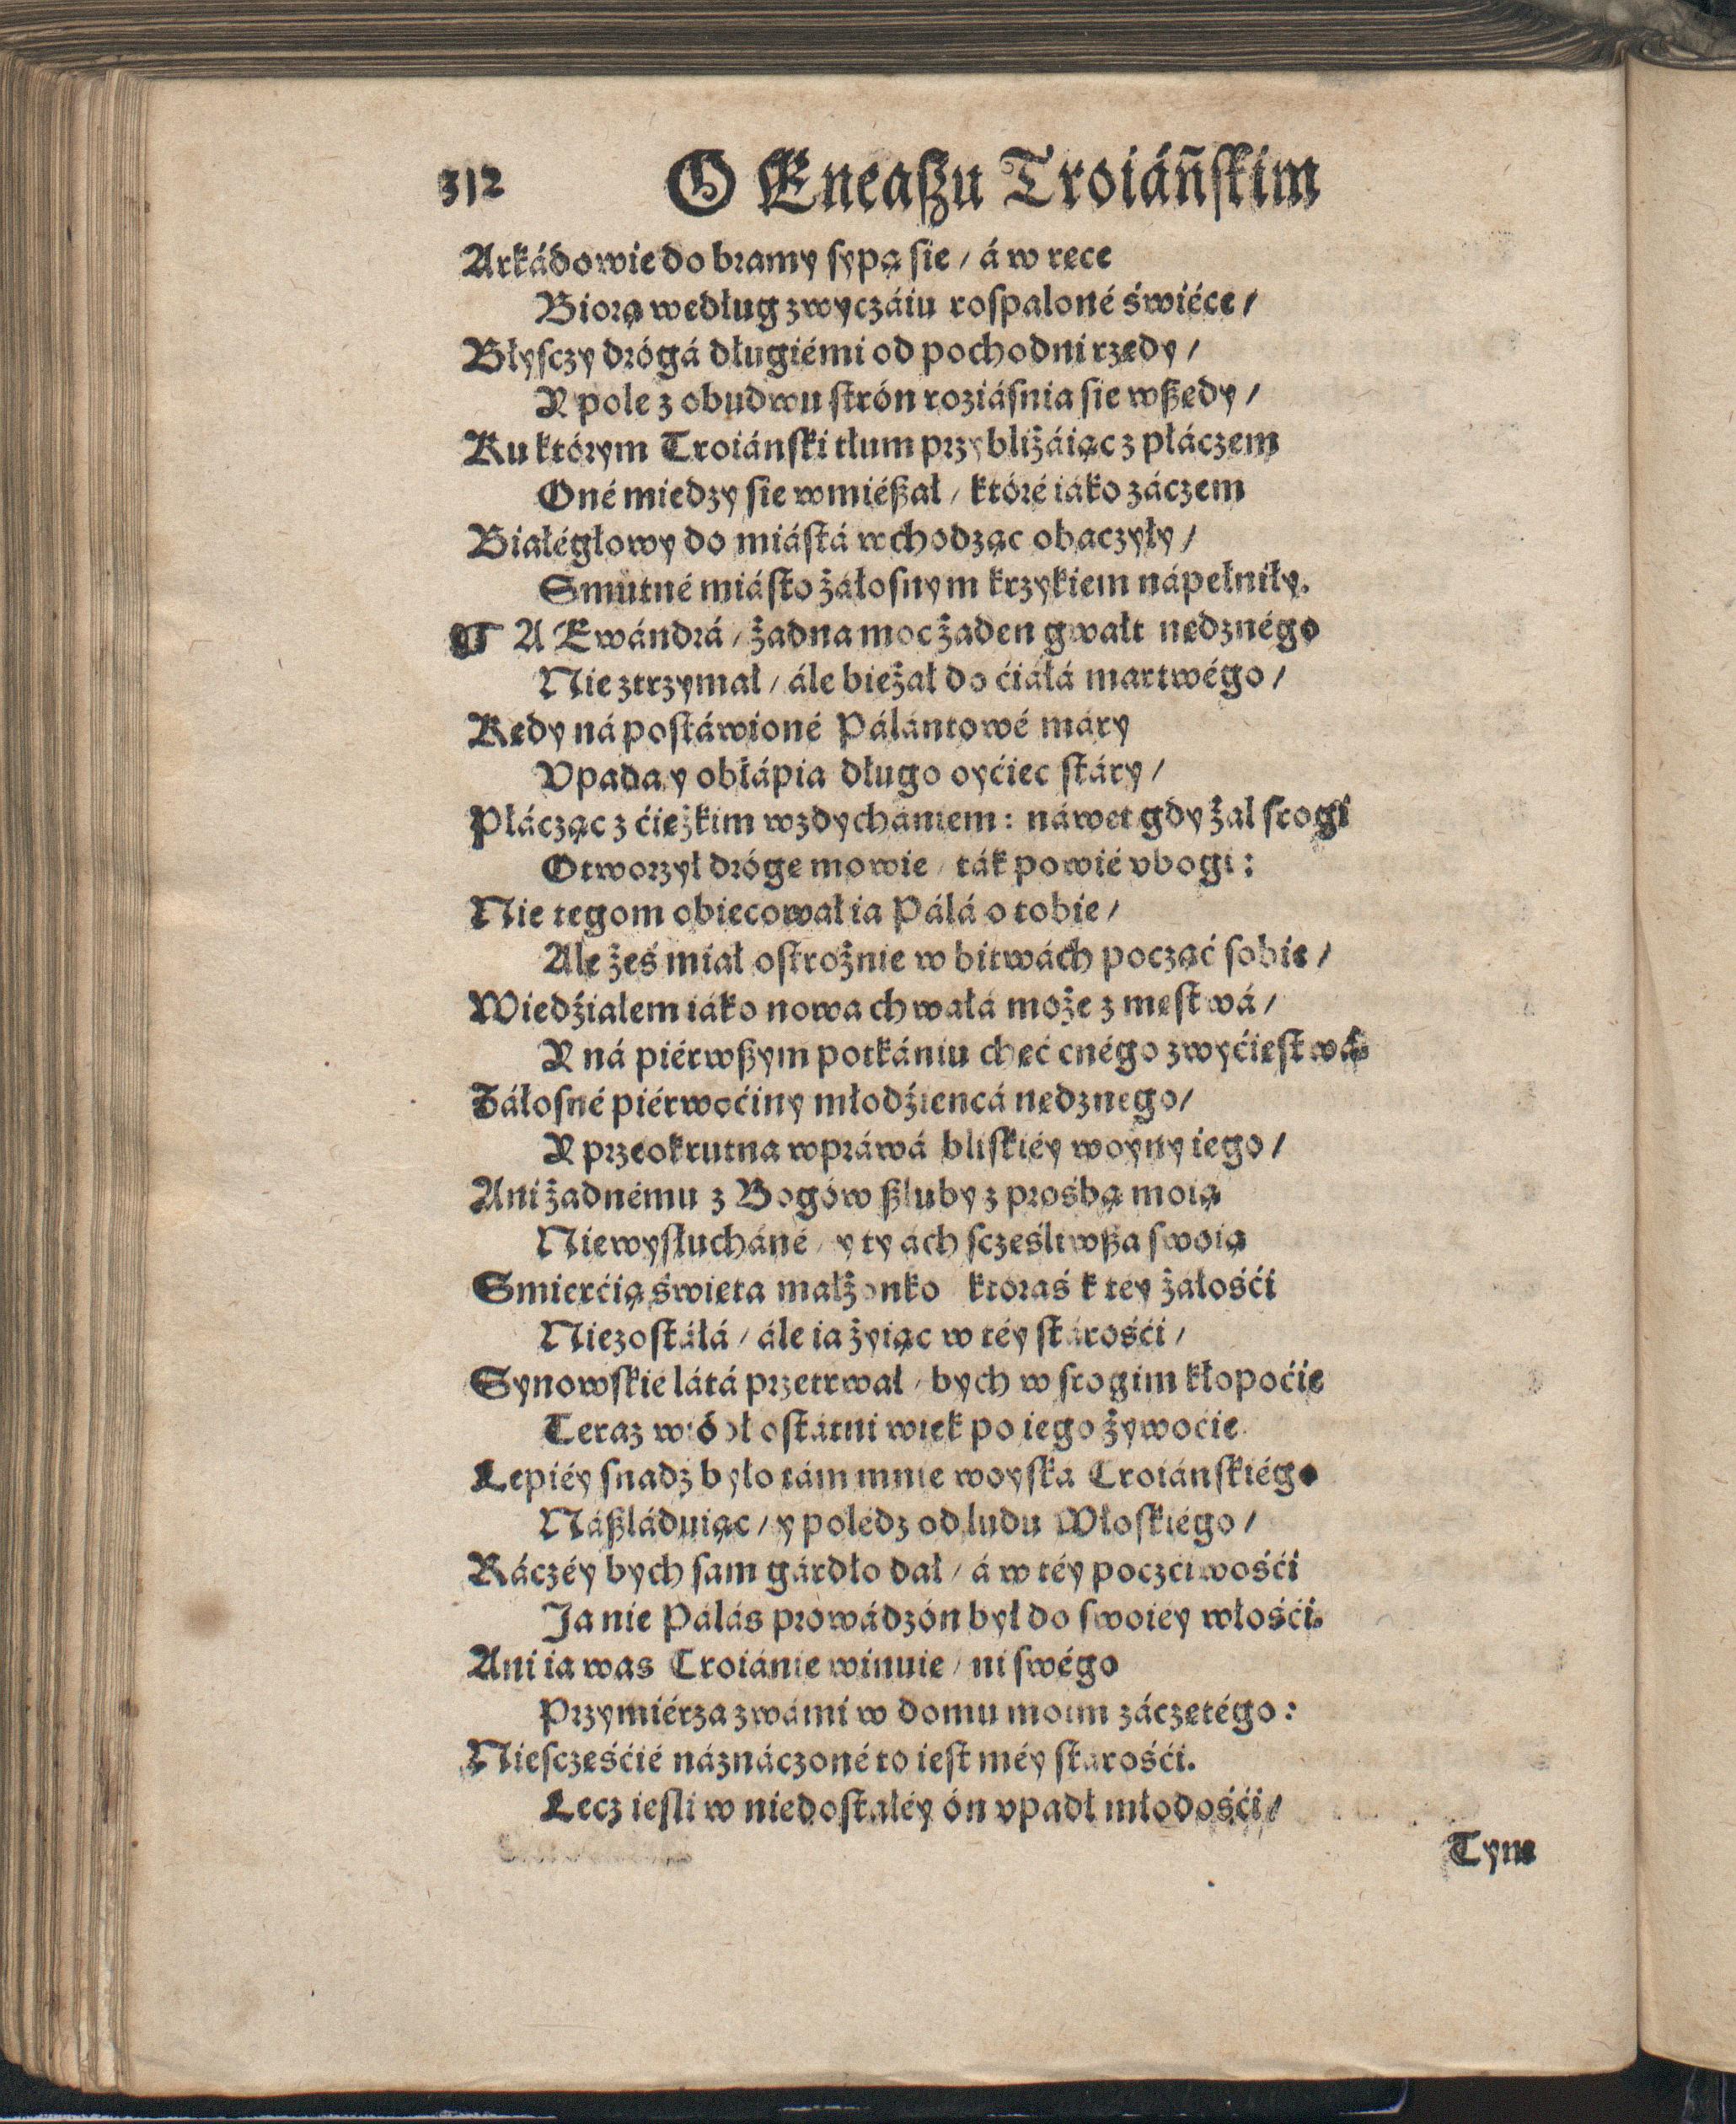 312 O Eneaszu Troiáńskim
Arkádowie do bramy sypą sie / á w ręce
Biorą według zwyczáiu rospaloné świéce /
Błysczy drógá długiémi od pochodni rzędy /
Y pole z obudwu strón roziáśnia sie wszędy /
Ku którym Troiánski tłum przybliżáiąc z płáczem
Oné miedzy sie wmiészał / któré iáko záczem
Białégłowy do miástá wchodząc obaczyły /
Smutné miásto żáłosnym krzykiem nápełniły.
¶ A Ewándrá / żadna moc żaden gwałt nędznégo
Nie ztrzymał / ále bieżał do ćiáłá martwégo /
Kędy ná postáwioné Pálántowé máry
Vpada y obłápia długo oyćiec stáry /
Płácząc z ćięzkim wzdychániem : náwet gdy żal srogi
Otworzył drógę mowie / ták powié vbogi :
Nie tegom obiecował ia Pálá o tobie /
Ale żeś miał ostrożnie w bitwách począć sobie /
Wiedźiałem iáko nowa chwałá może z męstwá /
Y ná piérwszym potkániu chęć cnégo zwyćięstwá.
Żáłosné piérwoćiny młodźiencá nędznego /
Y przeokrutna wpráwá bliskiéy woyny iego /
Ani żadnému z Bogów szluby z prośbą moią
Niewysłucháné / y ty ách sczęśliwsza swoią
Smierćią święta małżonko któraś k téy żáłośći
Niezostáłá / ále ia żyiąc w téy stárośći /
Synowskié látá przetrwał / bych w srogim kłopoćie
Teraz wiódł ostátni wiek po iego żywoćie.
Lepiéy snadź było tám mnie woyská Troiánskiégo
Nászláduiąc / y poledz od ludu Włoskiégo /
Ráczéy bych sam gárdło dał / á w téy poczćiwośći
Ja nie Pálás prowádzón był do swoiéy włośći.
Ani ia was Troiánie winuię / ni swégo
Przymiérza z wámi w domu moim záczętégo :
Niesczęśćié náznáczoné to iest méy stárośći.
Lecz iesli w niedostáłéy ón vpadł młodośći /
Tym